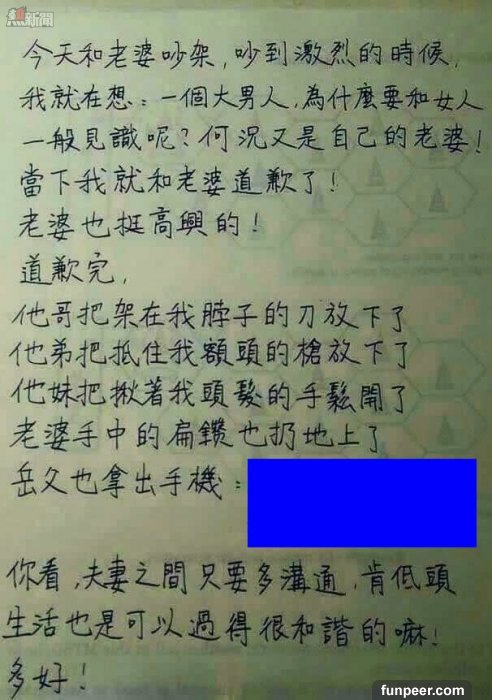 熱新聞
今天和老婆吵架，吵到激烈的時候，
我就在想：一個大男人，為什麼要和女人
一般見識呢？何況又是自己的老婆！
當下我就和老婆道歉了！
老婆也挺高興的！
道歉完，
他哥把架在我脖子的刀放下了
他弟把抵住我額頭的槍放下了
他妹把揪著我頭髮的手鬆開了
老婆手中的扁鑽也扔地上了
岳父也拿出手機：
你看，夫妻之間只要多溝通，肯低頭
生活也是可以過得很和諧的嘛！
多好！
funpeer.com